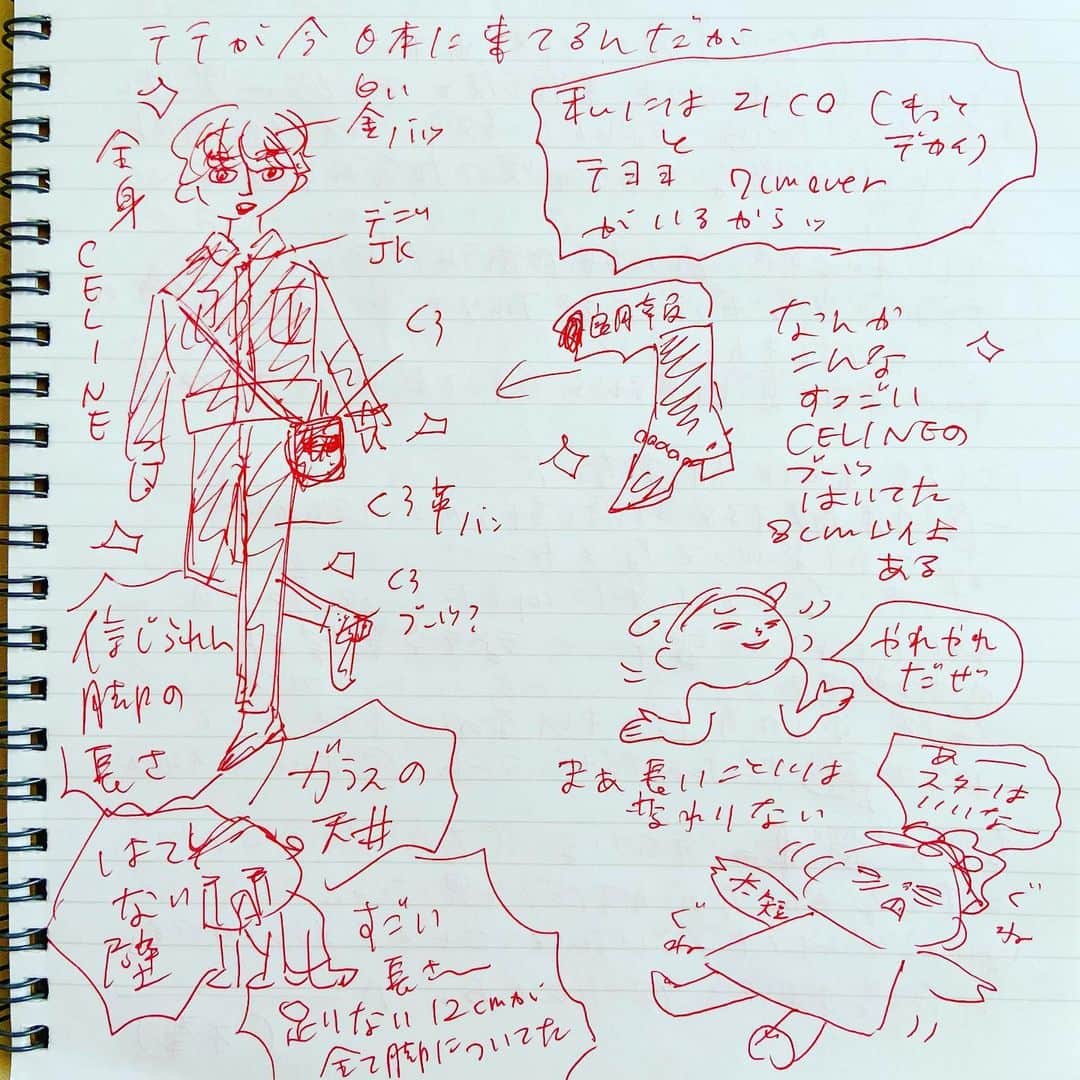 テテが今日本に来てるんだが
白い
金パツ
全身
CELINE
デニム
JK
くろ
くろ革パン
くろ
ブーツ?
信じられん
脚の
長さ
ガラスの
天井
はてし
ない
壁
すごい
長さ〜
足りない12cmが
全て脚についてた
私には ZICO (もって
と デカイ)
テヨヨ 7cm over
がいるからッ
なんか
こんな
すっごい
CELINEの
ブーツ
はいてた
8cm以上
ある
やれやれ
だぜ
まぁ長いことには
変わりない
あー
スターは
いいな
大短
ぐ
ね
ぐ
ね